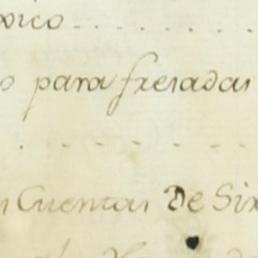 xico
o para frezadas
n Cuentas De Six